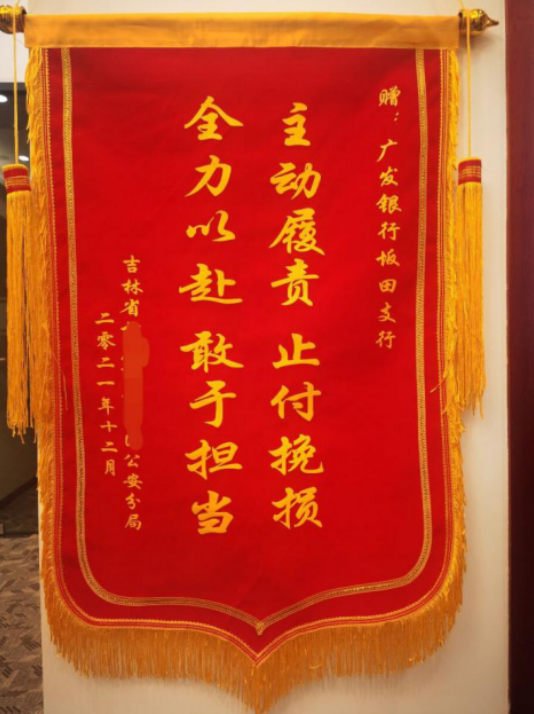 赠：广发银行坂田支行
主动履责 止付挽损
全力以赴 敢于担当
吉林省 公安分局
二零二一年十二月